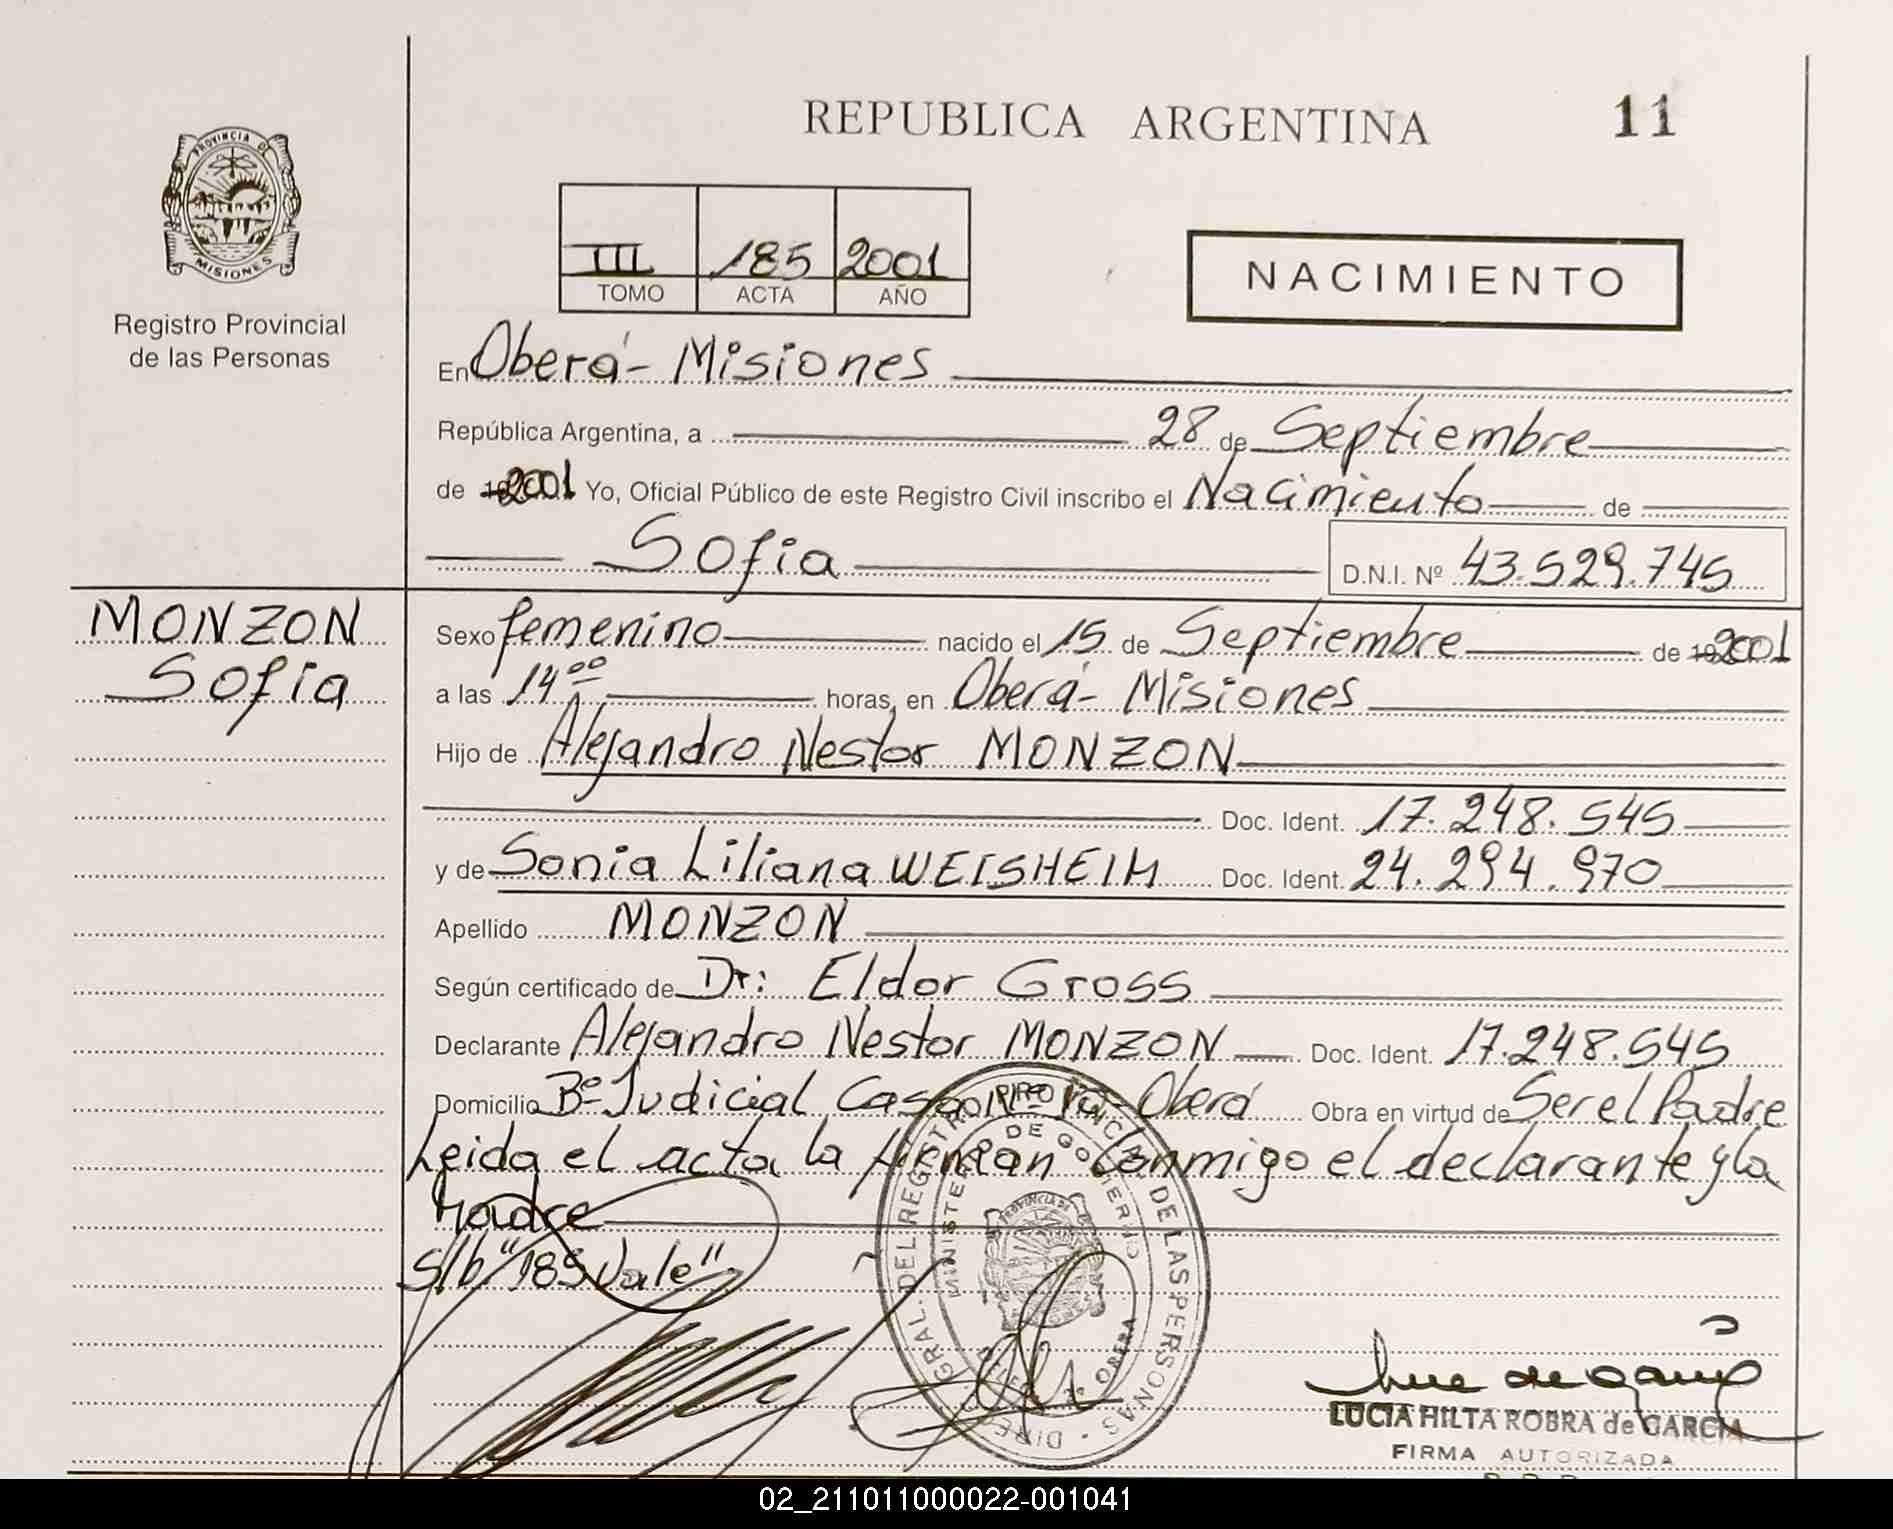 REPUBLICA ARGENTINA
11
PROVINCIA DE
MISIONES
Registro Provincial
de las Personas
III 185 2001
TOMO ACTA AÑO
NACIMIENTO
En Oberá - Misiones
República Argentina, a 28 de Septiembre
de 19 2001 Yo, Oficial Público de este Registro Civil inscribo el Nacimiento de
Sofia D.N.I. Nº 43.529.745
MONZON
Sofia
Sexo femenino nacido el 15 de Septiembre de 19 2001
a las 14 ºº horas, en Oberá - Misiones
Hijo de Alejandro Nestor MONZON
Doc. Ident. 17.248.545
y de Sonia Liliana WEISHEIM Doc. Ident. 24.294.970
Apellido MONZON
Según certificado de Dr: Eldor Gross
Declarante Alejandro Nestor MONZON Doc. Ident. 17.248.545
Domicilio Bº Judicial Casa Nº Oberá Obra en virtud de Ser el Padre
Leida el acta la firman conmigo el declarante y la
Madre
S/b "185 Vale"
DIREC. GRAL. DEL REGISTRO PROVINCIAL DE LAS PERSONAS
MINISTERIO DE GOBIERNO
PROVINCIA DE
OBERA
LUCIA HILTA ROBRA de GARCIA
FIRMA AUTORIZADA
02_211011000022-001041